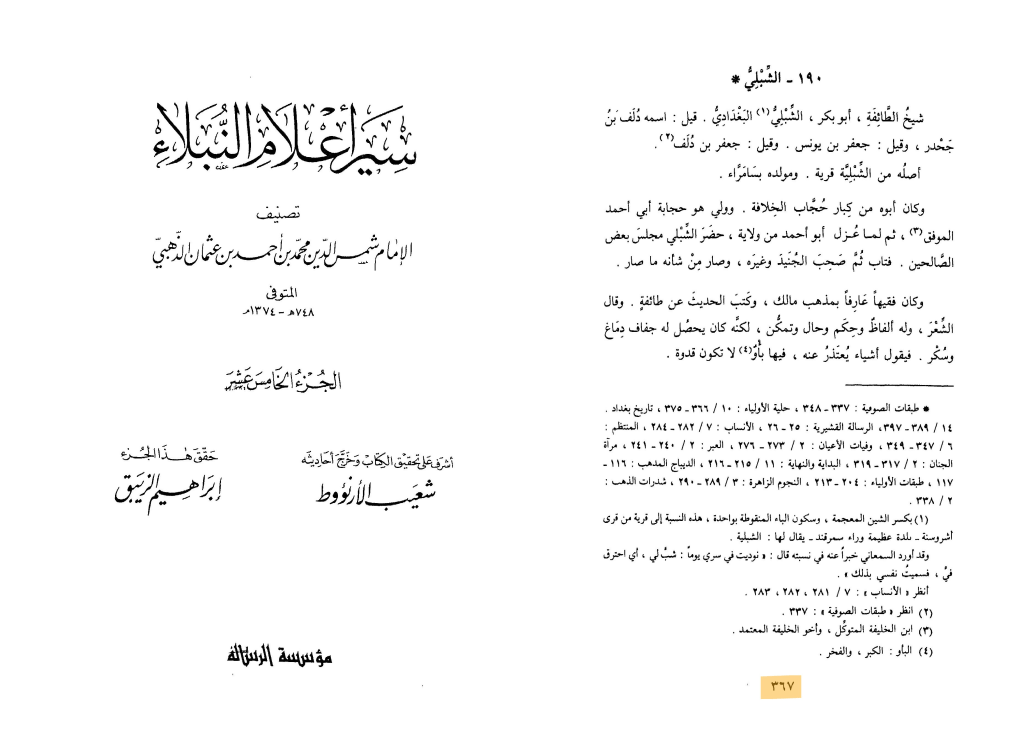 ١٩٠ ـ الشِّبْلِيُّ *
شيخُ الطَّائِفَةِ ، أبو بكر ، الشِّبْلِيُّ(١) البَغْدَادِيُّ . قيل : اسمه دُلَف بْنُ
جَحْدر ، وقيل : جعفر بن يونس . وقيل : جعفر بن دُلَف(٢) .
أصلُه من الشِّبْلِيَّة قرية . ومولده بسَامَرَّاء .
وكان أبوه من كِبار حُجَّاب الخِلافة . وولي هو حجابة أبي أحمد
الموفق(٣) ، ثم لما عُزل أبو أحمد من ولاية ، حضَرَ الشِّبْلي مجلسَ بعض
الصَّالحين . فتاب ثُمَّ صَحِبَ الجُنَيدَ وغيرَه ، وصار مِنْ شأنه ما صار .
وكان فقيهاً عَارِفاً بمذهب مالك ، وكَتبَ الحديثَ عن طائفةٍ . وقال
الشِّعْرَ ، وله ألفاظٌ وحِكَم وحال وتمكُّن ، لكنَّه كان يحصُل له جفاف دِمَاغ
وسُكْر . فيقول أشياء يُعتَذرُ عنه ، فيها بَأْوٌ(٤) لا تكون قدوة .
* طبقات الصوفية : ٣٣٧ ـ ٣٤٨ ، حلية الأولياء : ١٠ / ٣٦٦ ـ ٣٧٥ ، تاريخ بغداد .
١٤ / ٣٨٩ ـ ٣٩٧، الرسالة القشيرية : ٢٥ ـ ٢٦ ، الأنساب : ٧ / ٢٨٢ ـ ٢٨٤ ، المنتظم :
٦ / ٣٤٧ ـ ٣٤٩ ، وفيات الأعيان : ٢ / ٢٧٣ ـ ٢٧٦ ، العبر : ٢ / ٢٤٠ ـ ٢٤١ ، مرآة
الجنان : ٢ / ٣١٧ ـ ٣١٩ ، البداية والنهاية : ١١ / ٢١٥ ـ ٢١٦ ، الديباج المذهب : ١١٦ ـ
١١٧ ، طبقات الأولياء : ٢٠٤ ـ ٢١٣ ، النجوم الزاهرة : ٣ / ٢٨٩ ـ ٢٩٠ ، شذرات الذهب :
٢ / ٣٣٨ .
(١) بكسر الشين المعجمة ، وسكون الباء المنقوطة بواحدة ، هذه النسبة إلى قرية من قرى
أشروسنة ـ بلدة عظيمة وراء سمرقند ـ يقال لها : الشبلية .
وقد أورد السمعاني خبراً عنه في نسبته قال : « نوديت في سري يوماً : شبْ لي ، أي احترق
فيّ ، فسميتُ نفسي بذلك » .
أنظر « الأنساب » : ٧ / ٢٨١ ، ٢٨٢ ، ٢٨٣ .
(٢) انظر « طبقات الصوفية » : ٣٣٧ .
(٣) ابن الخليفة المتوكّل ، وأخو الخليفة المعتمد .
(٤) البأو : الكبر ، والفخر .
٣٦٧
سير أعلام النبلاء
تصنيف
الإمام شمس الدين محمد بن أحمد بن عثمان الذهبي
المتوفى
٧٤٨هـ ـ ١٣٧٤م
الجزء الخامس عشر
أشرف على تحقيق الكتاب وخرج أحاديثه
شعيب الأرنؤوط
حقق هذا الجزء
إبراهيم الزيبق
مؤسسة الرسالة